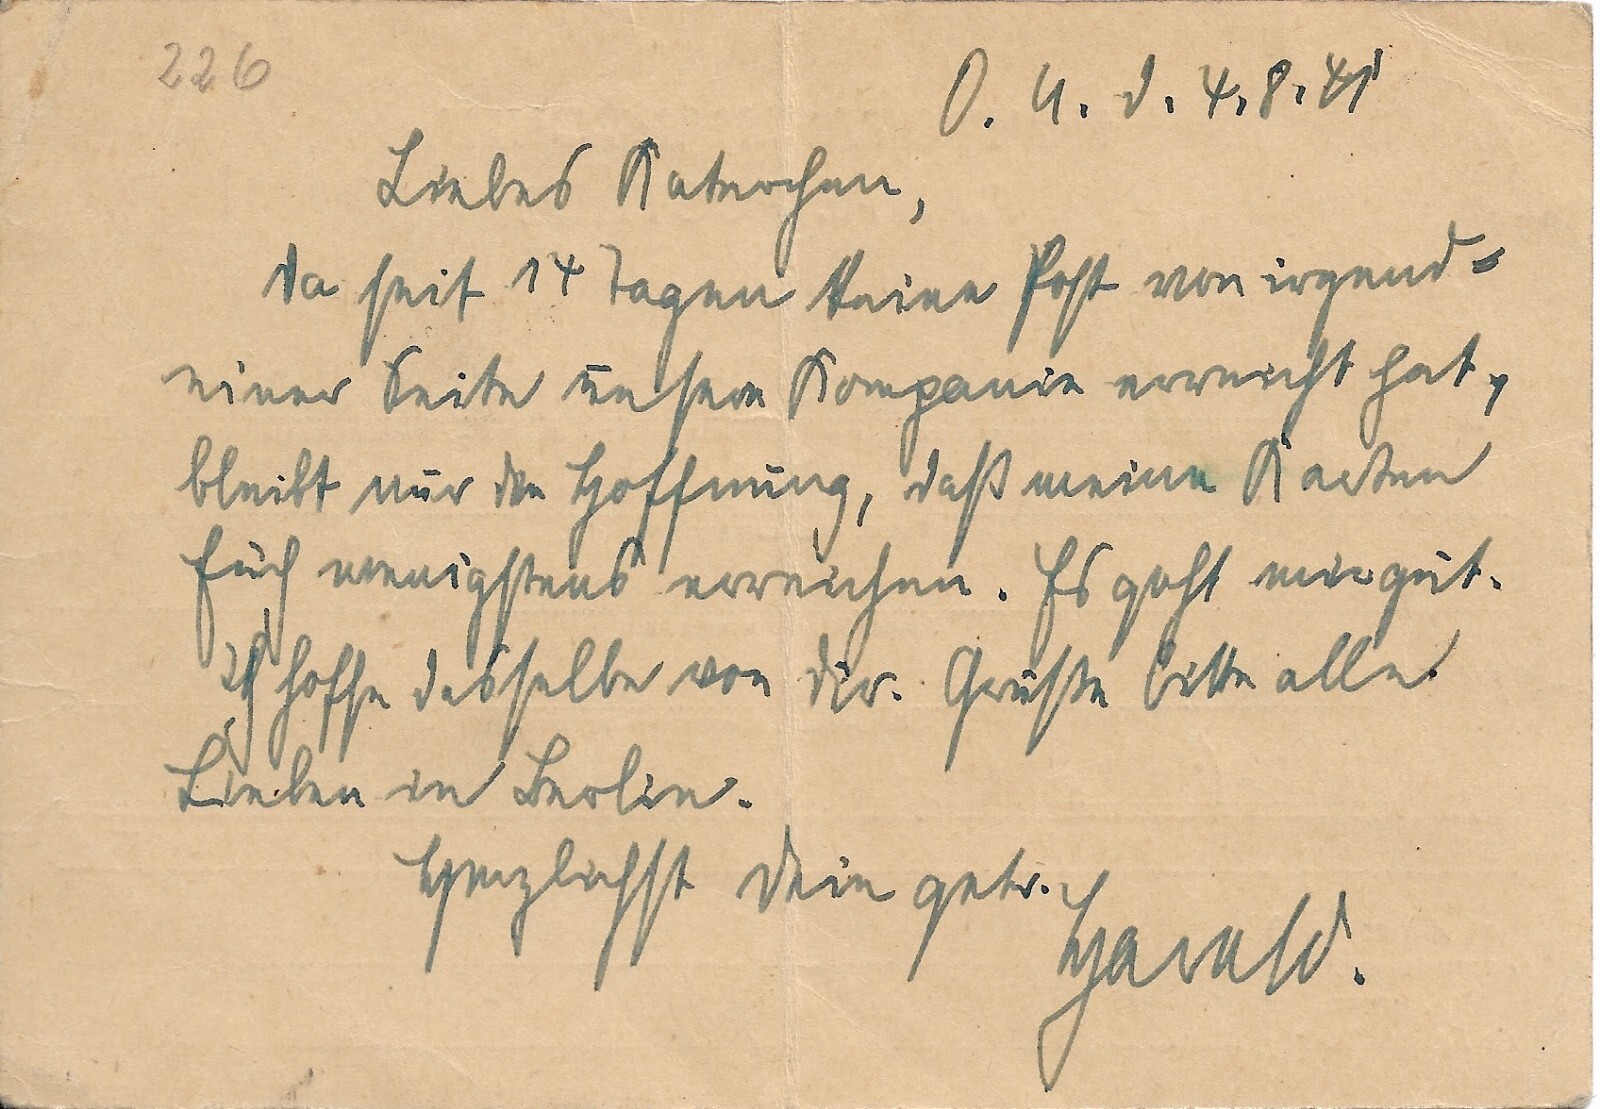 226
O. U. d. 4.8.41
Liebes Katerchen,
da seit 14 Tagen keine Post von irgend=
einer Seite unsere Kompanie erreicht hat,
bleibt nur die Hoffnung, daß meine Karten
Euch wenigstens erreichen. Es geht mir gut.
Ich hoffe dasselbe von dir. Grüße bitte alle
Lieben in Berlin.
Herzlichst Dein getr.
Harald.